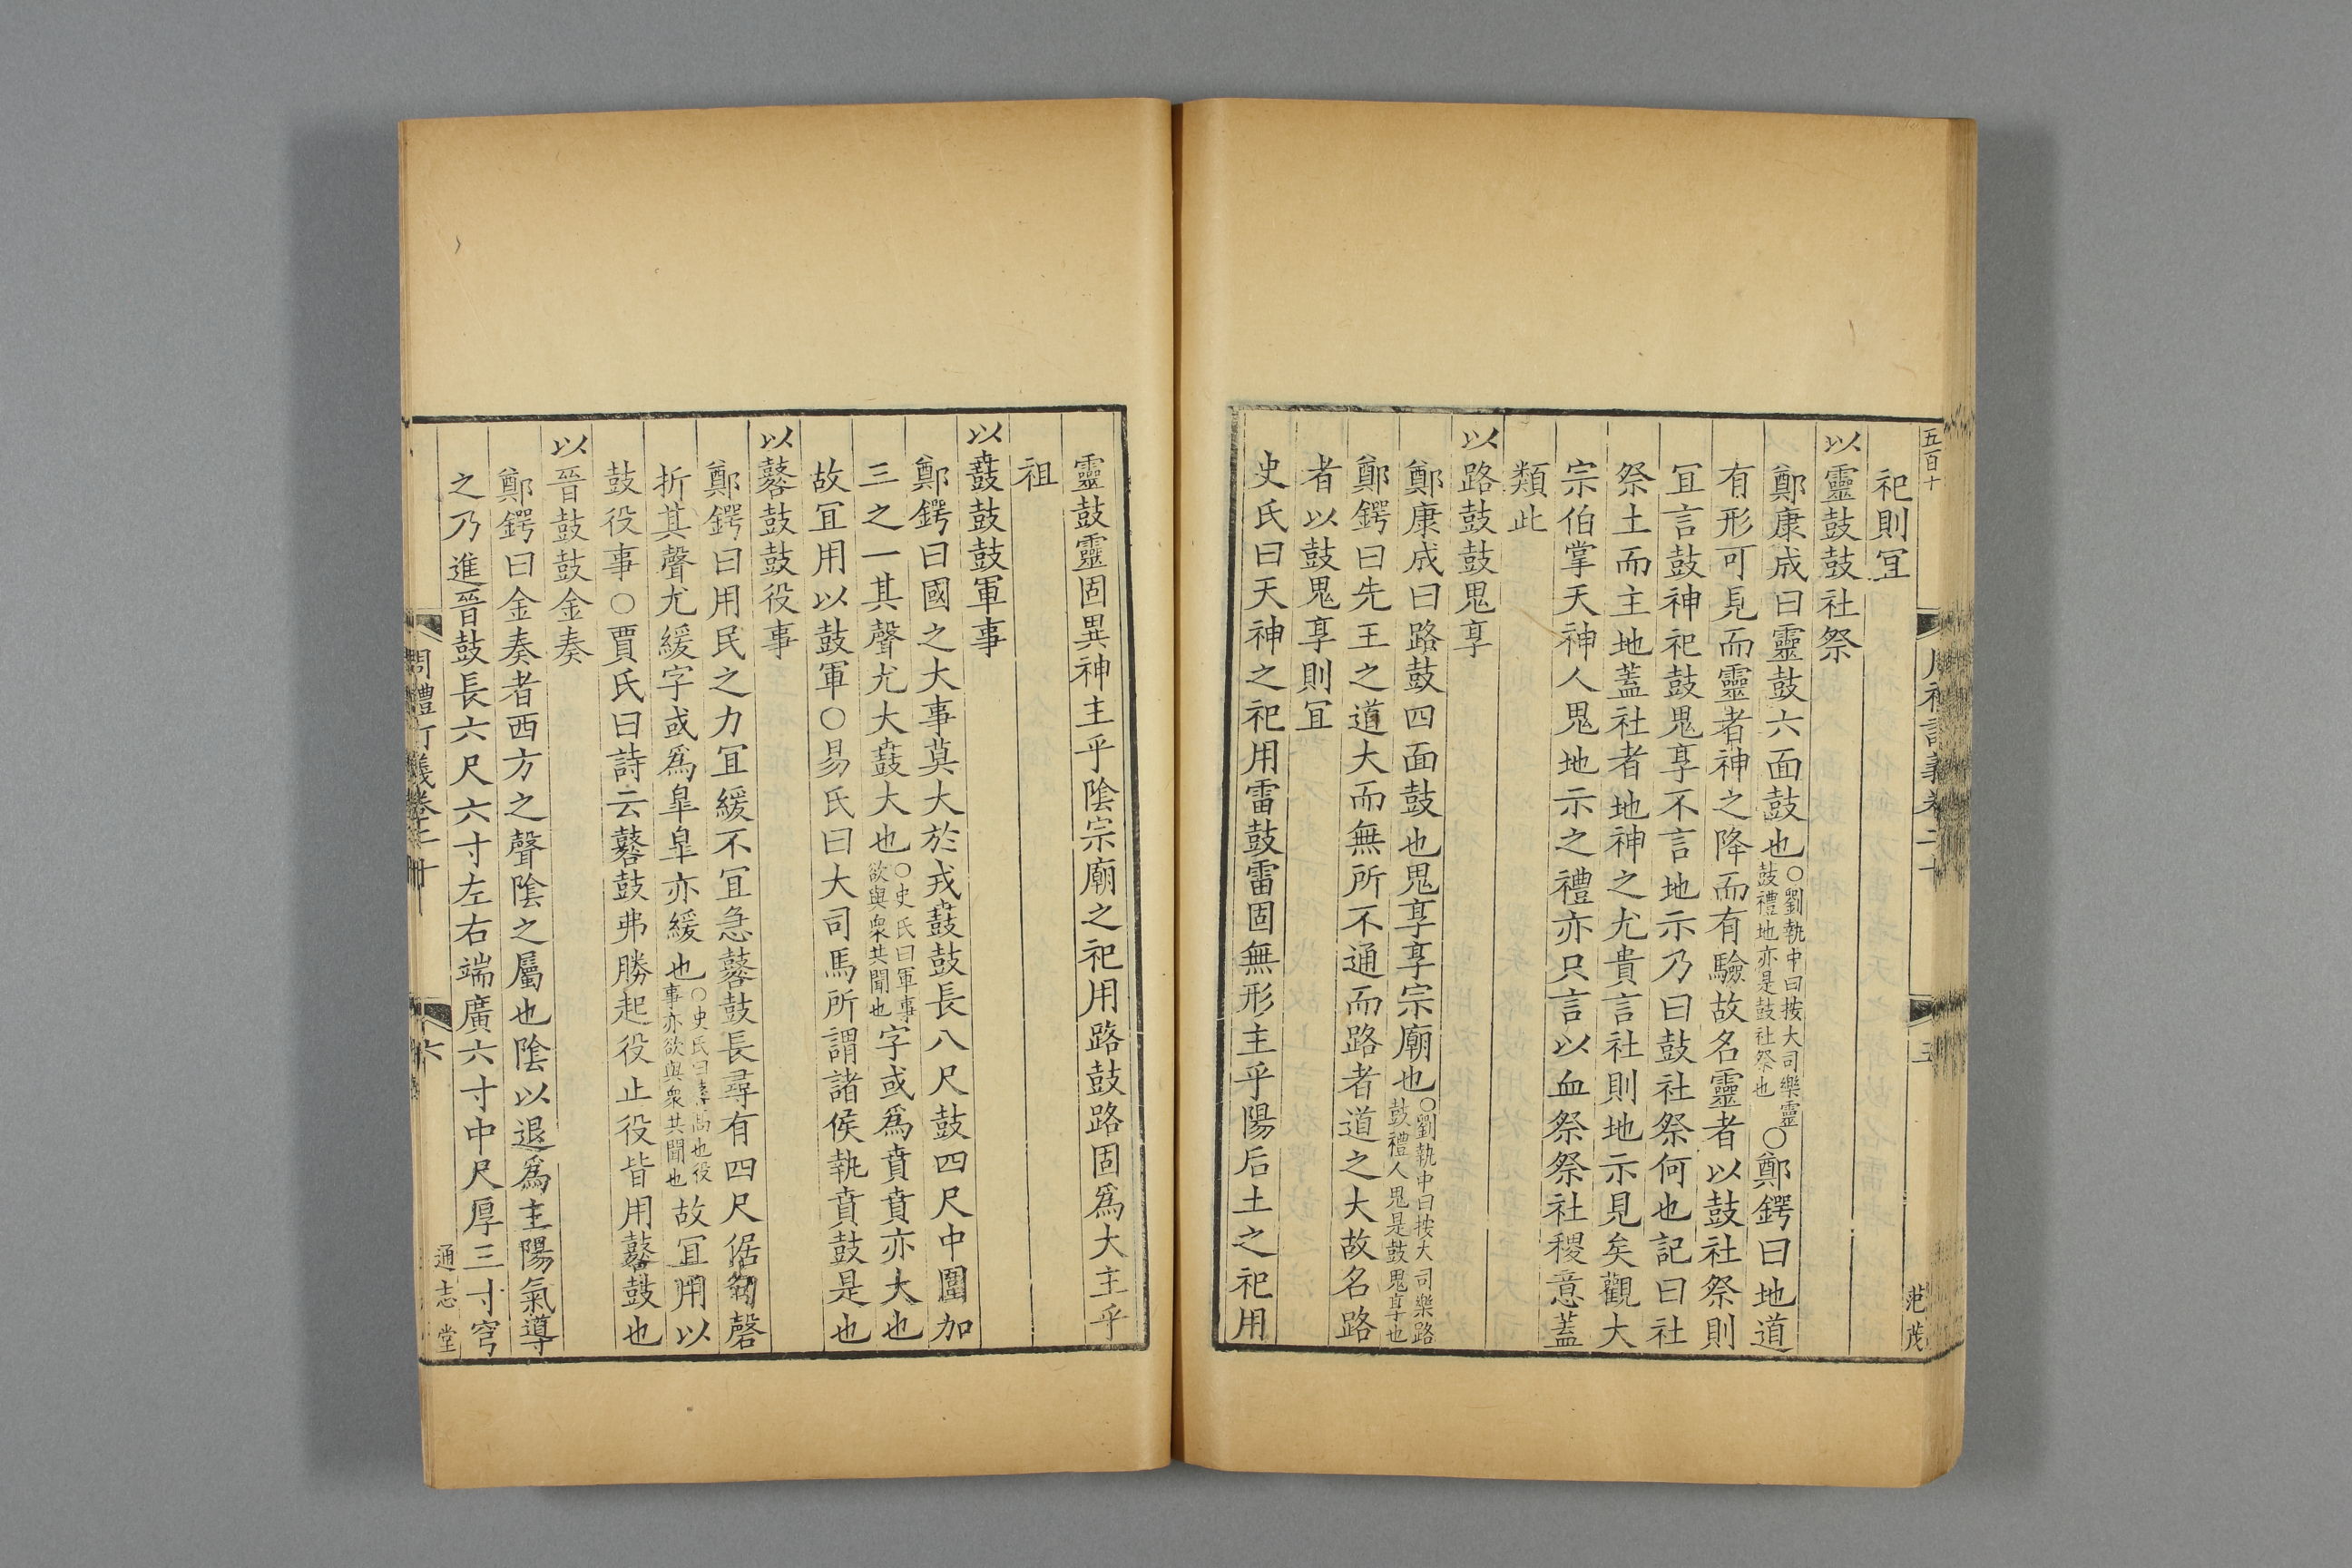 五百十
五
范茂
祀則冝
以靈鼓鼓社祭
鄭康成曰靈鼓六面鼓也○劉執中曰按大司樂靈鼓禮地亦是鼓社祭也○鄭鍔曰地道
有形可見而靈者神之降而有驗故名靈者以鼓社祭則
冝言鼓神祀鼓鬼享不言地示乃曰鼓社祭何也記曰社
祭土而主地蓋社者地神之尤貴言社則地示見矣觀大
宗伯掌天神人鬼地示之禮亦只言以血祭祭社稷意蓋
類此
以路鼓鼓鬼享
鄭康成曰路鼓四面鼓也鬼享享宗廟也○劉執中曰按大司樂路鼓禮人鬼是鼓鬼享也
鄭鍔曰先王之道大而無所不通而路者道之大故名路
者以鼓鬼享則冝
史氏曰天神之祀用雷鼓雷固無形主乎陽后土之祀用
靈鼓靈固異神主乎陰宗廟之祀用路鼓路固爲大主乎
祖
以鼖鼓鼓軍事
鄭鍔曰國之大事莫大於戎鼖鼓長八尺鼓四尺中圍加
三之一其聲尤大鼖大也○史氏曰軍事欲與衆共聞也字或爲賁賁亦大也
故冝用以鼓軍○易氏曰大司馬所謂諸侯執賁鼓是也
以鼛鼓鼓役事
鄭鍔曰用民之力冝緩不冝急鼛鼓長尋有四尺倨句磬
折其聲尤緩字或爲臯臯亦緩也○史氏曰鼛高也役事亦欲與衆共聞也故冝用以
鼓役事○賈氏曰詩云鼛鼓弗勝起役止役皆用鼛鼓也
以晉鼓鼓金奏
鄭鍔曰金奏者西方之聲陰之屬也陰以退爲主陽氣導
之乃進晉鼓長六尺六寸左右端廣六寸中尺厚三寸穹
周禮訂義卷二十
六
通志堂